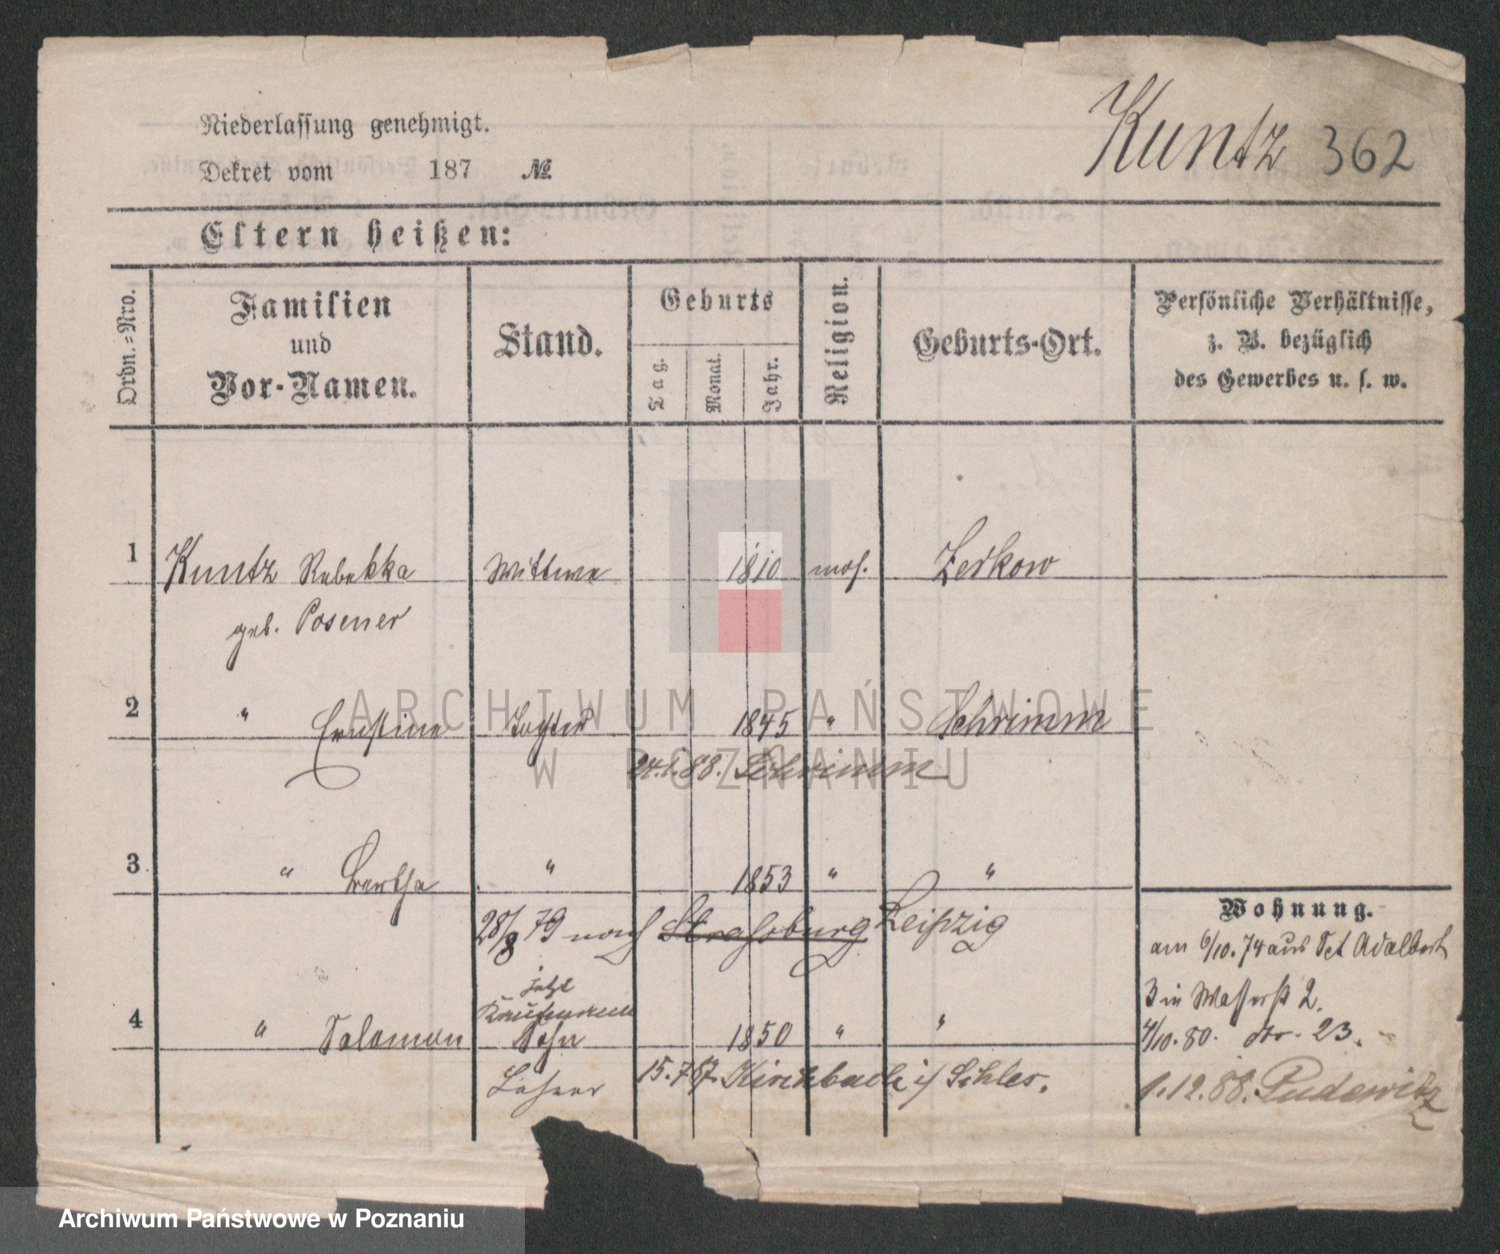 Kuntz 362
Niederlassung genehmigt.
Dekret vom 187 №
Eltern heißen:
Ordn.=Nro.
Familien
und
Vor-Namen.
Stand.
Geburts
Tag.
Monat.
Jahr.
Religion.
Geburts-Ort.
Persönliche Verhältnisse,
z. B. bezüglich
des Gewerbes u. s. w.
1 Kuntz Rebekka Wittwe 1810 mos. Zerkow
geb. Posener
2 " Ernstine Tochter 1845 " Schrimm
24.1.88. Schrimm
3 " Bertha " 1853 " "
28/8 79 nach Strassburg Leipzig
jetzt
Kaufmann
4 " Salomon Sohn 1850 " "
15.7. Kirchbach i/ Schles.
Wohnung.
am 6/10.74 aus Sct Adalbert
3 in Wasserst 2.
4/10.80. 23.
1.12.88. Pudewitz
ARCHIWUM PAŃSTWOWE
W POZNANIU
Archiwum Państwowe w Poznaniu